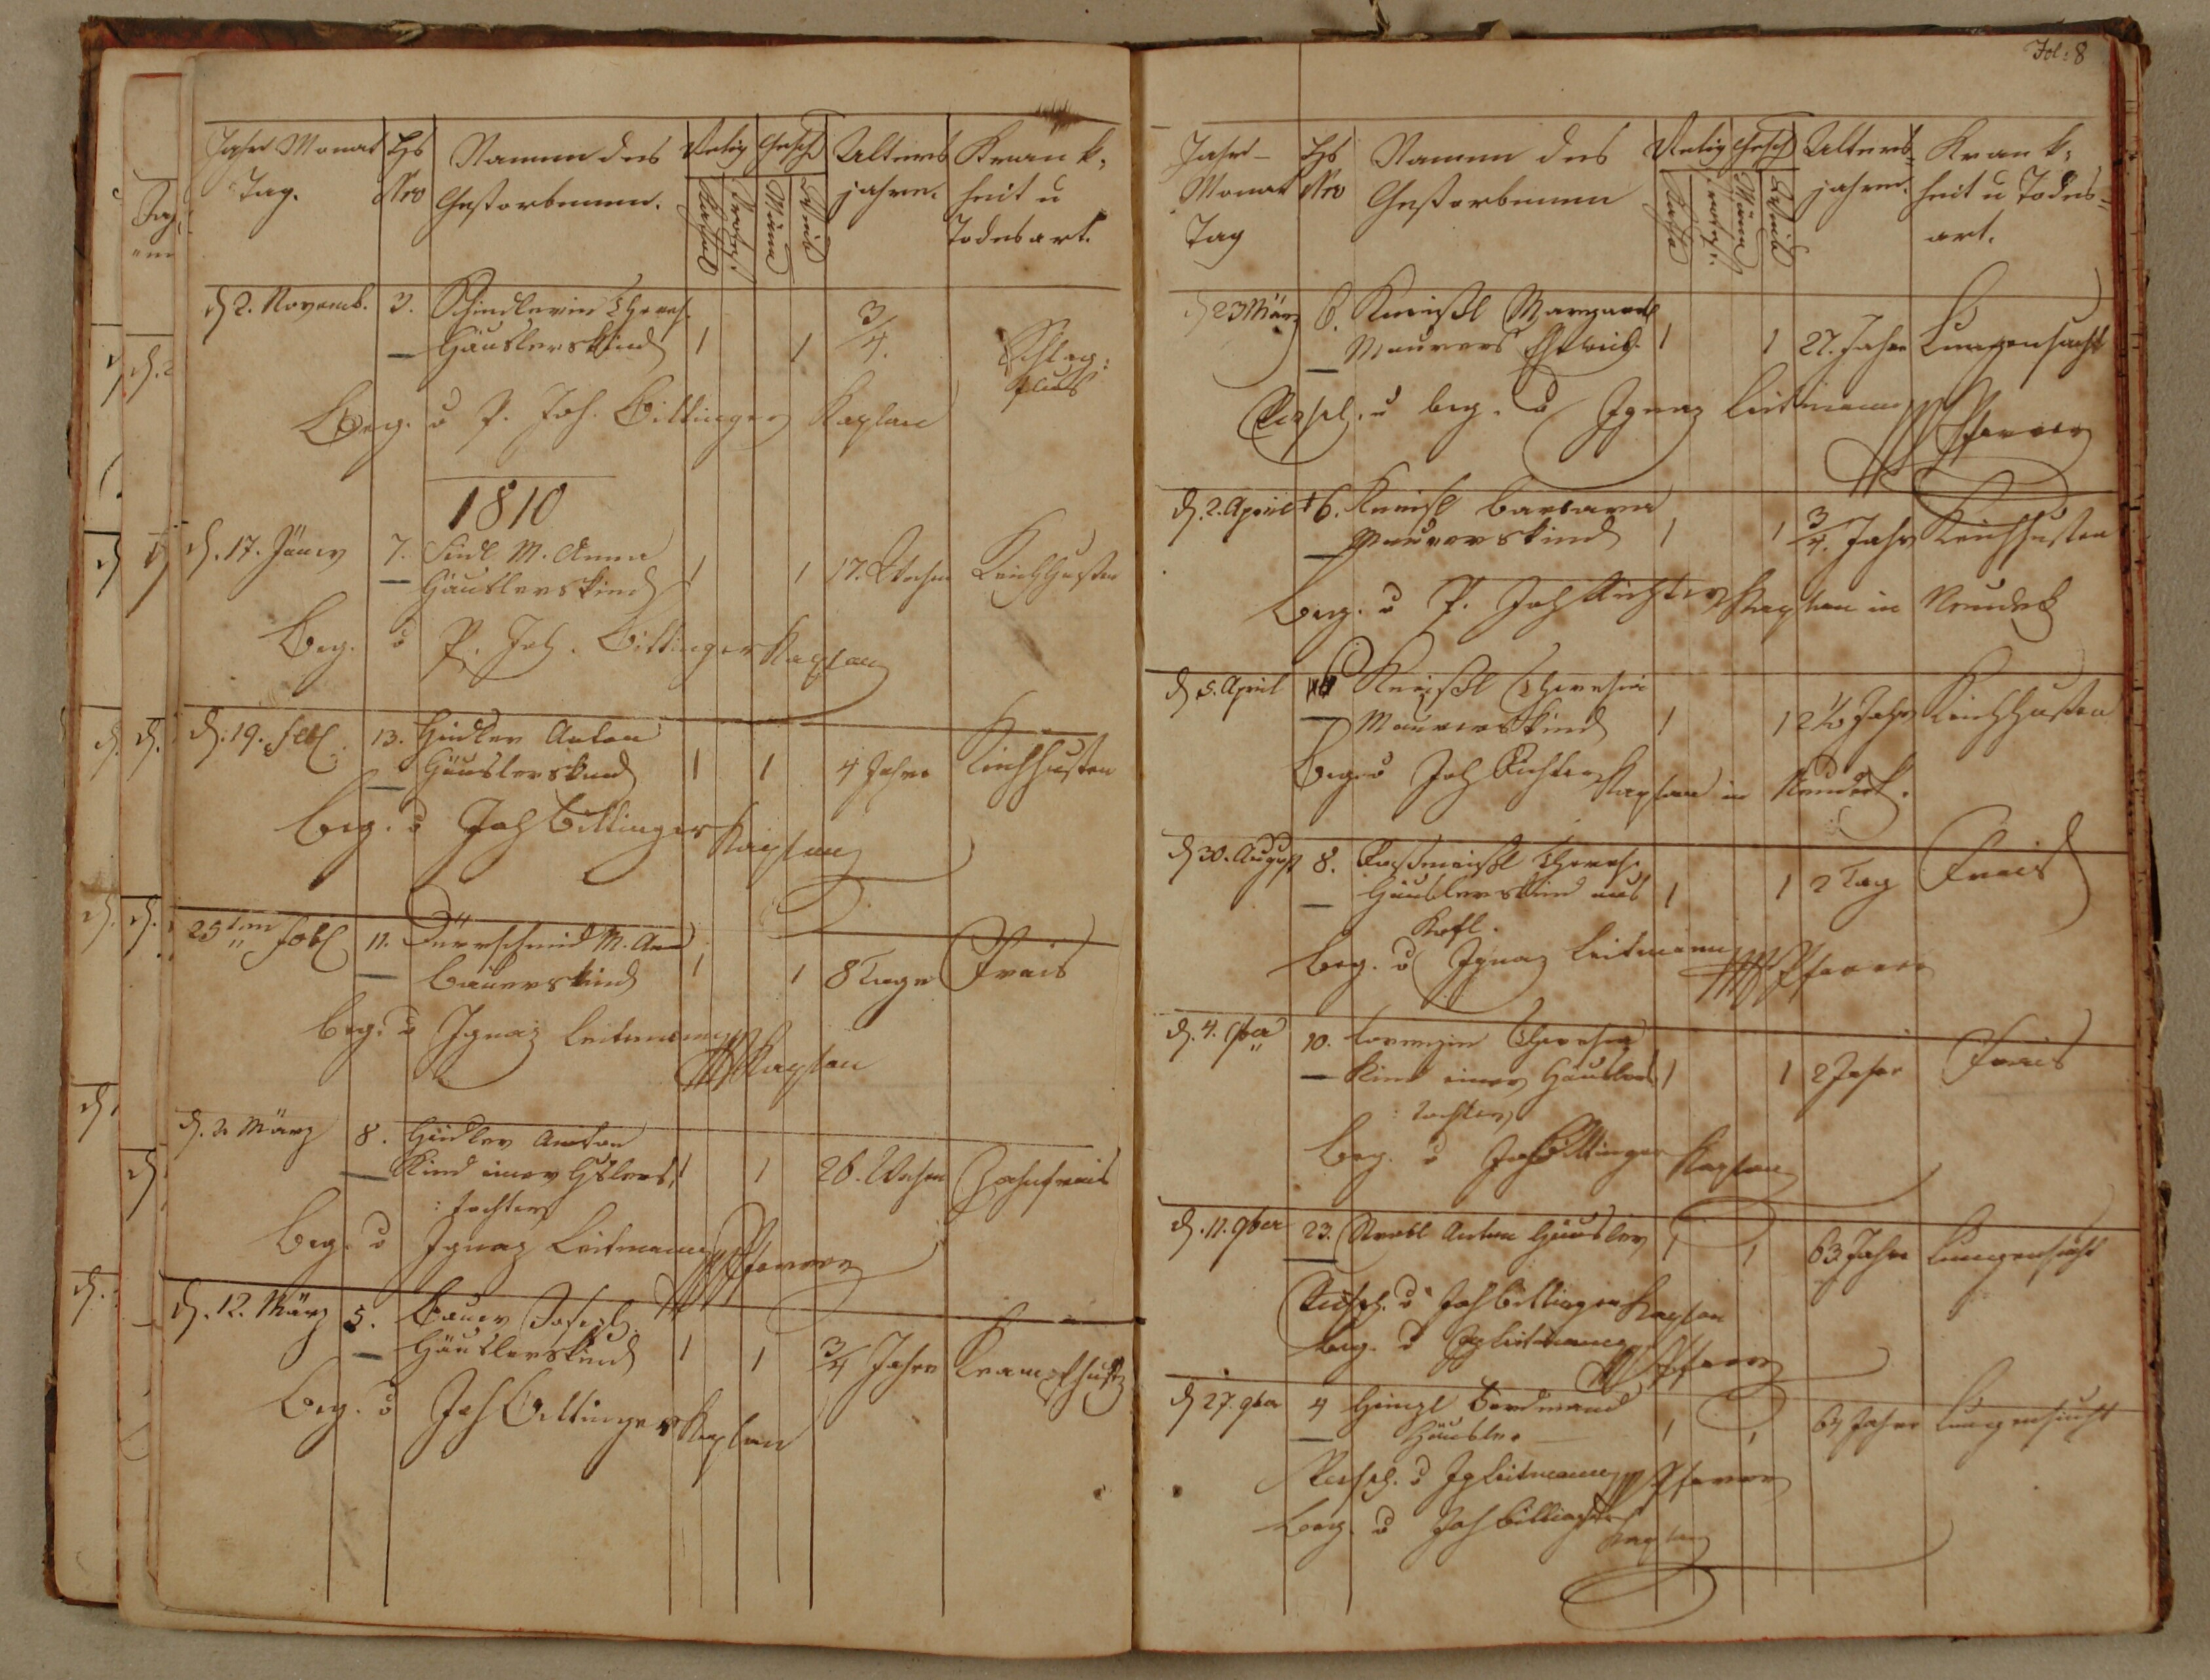 Jahr Monat Tag.
Hs Nro
Namen des Gestorbenen.
Relig
Kathol
Protest.
Geschl
Männl
Weibl
Alters jahre.
Krank: heit u Todesart.
d 2. Novemb. 3. Theres.
Häuslerskind 1 1 3/4. Schlag: fluß
Beg. v P. Joh. Billinger Kaplan
1810
d. 17. Jäner 7. M. Anna
Häuslerskind 1 1 17. Wochen Keichhusten
Beg. v P. Joh. Billinger Kaplan
d. 19. Feb 13. Anton
Häuslerskind 1 1 4 Jahre Keichhusten
Beg. v Joh Billinger Kaplan
25ten Febr 11. Dürrschmid M. Ann
Bauerskind 1 1 8 Tage Frais
Beg. v Ignaz Leitmann Kaplan
d. 2 März 8. Anton
Kind einer Hslers 1 1 26. Wochen Zahnfrais
: tochter
Beg. v Ignaz Leitmann Pfarrer
d. 12. März 5. Bauer Joseph.
Häuslerskind 1 1 3/4 Jahre
Beg. v Joh Billinger Kaplan
Fol: 8
Jahr- Monat Tag
Hs Nro
Namen des Gestorbenen
Relig
Kathol
Protest.
Geschl
Männl
Weibl
Alters- jahre.
Krank: heit u Todes= art.
d 23 März 6. Kneißl Margareth
Maurers Eheweib. 1 1 27. Jahre Lungensucht
Versehl. u beg. v Ignaz Leitmann Pfarrer
d. 2. April 6. Kneißl Barbara
Maurerskind 1 1 3/4. Jahr Keichhusten
Beg. v P. Joh Richter Kaplan in Neudek
d 5. April Kneißl Theresia
Maurerskind 1 1 2 1/2 Jahr Keichhusten
Beg v Joh Richter Kaplan in Neudek.
d 30. August 8. Theres.
Häuslerskind aus 1 1 2 Tag Frais
Beg. v Ignaz Leitmann Pfarrer
d. 4. 10. Theresia
Kind einer Häuslers 1 1 2 Jahre Frais
: tochter
Beg. v Joh Billinger Kaplan
d. 11. 9ber 23. Anton Häusler 1 1 63 Jahre Lungensucht
Versehl. v Joh Billinger Kaplan
Beg. v Ig Leitmann Pfarrer
d 27. 9ber 4 Ferdinand
Häusler 1 1 64 Jahre Lungensucht
Versehl. v Ig Leitmann Pfarrer
Beg. v Joh Billinger
Kaplan